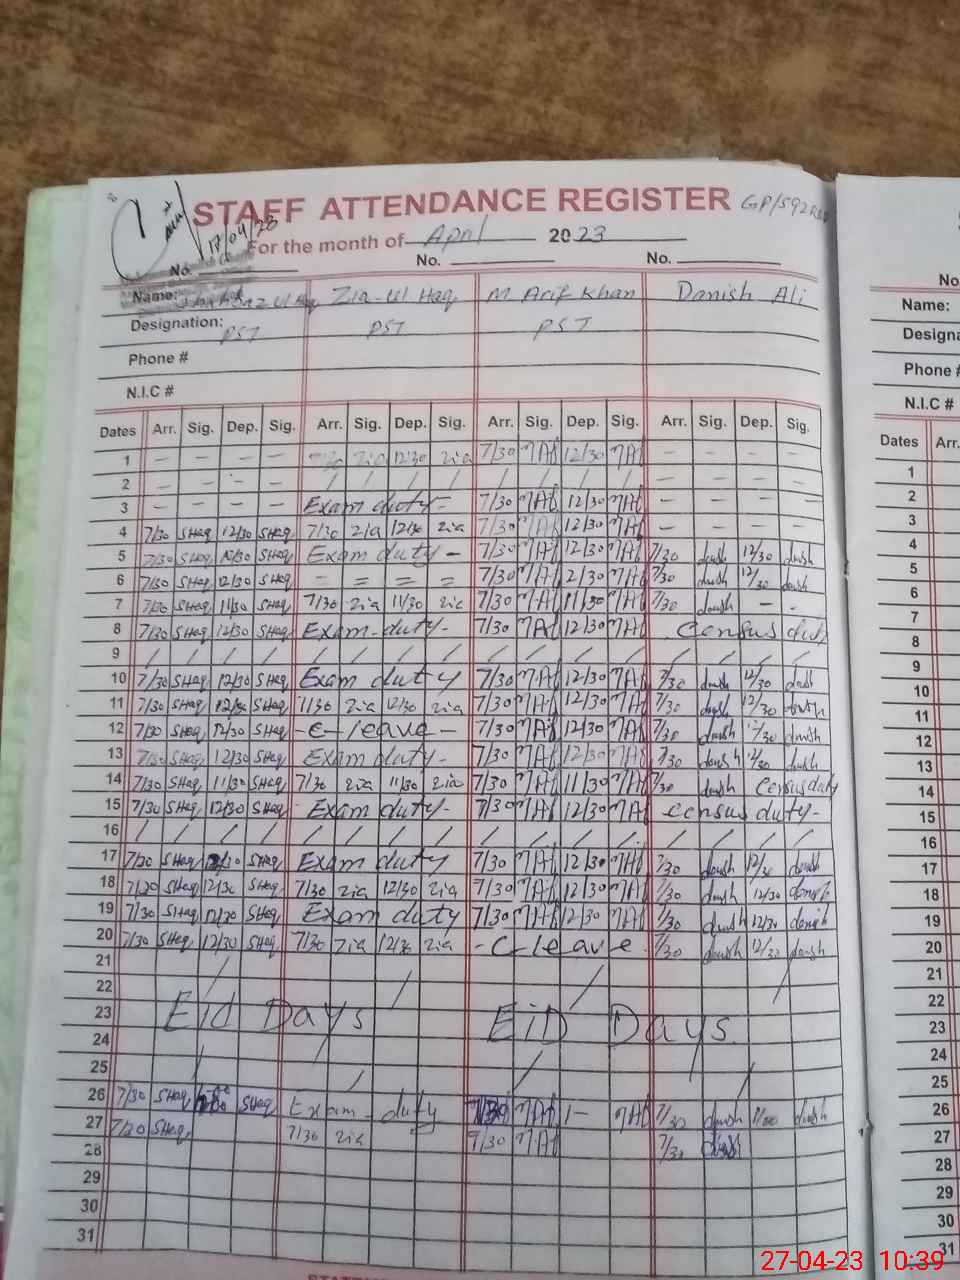 STAFF ATTENDANCE REGISTER
17/04/23
For the month of April 2023
No. No. No.
Name: Zia-ul Haq M Arif Khan Danish Ali
Designation: PST PST PST
Phone #
N.I.C #
Dates Arr. Sig. Dep. Sig. Arr. Sig. Dep. Sig. Arr. Sig. Dep. Sig. Arr. Sig. Dep. Sig.
1 — — — — 7/30 zia 12/30 zia 7/30 MAf 12/30 MAf — — — —
2 — — — — / / / / / / / / — — — —
3 — — — — Exam duty - 7/30 MAf 12/30 MAf — — — —
4 7/30 SHaq 12/30 SHaq 7/30 zia 12/30 zia 7/30 MAf 12/30 MAf — — — —
5 7/30 SHaq SHaq Exam duty - 7/30 MAf 12/30 MAf 7/30 dmsh 12/30 dmsh
6 7/30 SHaq 12/30 SHaq = = = = 7/30 MAf 2/30 MAf 7/30 dmsh 12/30 dmsh
7 7/30 SHaq 11/30 SHaq 7/30 zia 11/30 zia 7/30 MAf 11/30 MAf 7/30 dmsh — -
8 7/30 SHaq 12/30 SHaq Exam-duty- 7/30 MAf 12/30 MAf Census duty
9 / / / / / / / / / / / / / / / /
10 7/30 SHaq 12/30 SHaq Exam duty 7/30 MAf 12/30 MAf 7/30 dmsh 12/30 dmsh
11 7/30 SHaq 12/30 SHaq 7/30 zia 12/30 zia 7/30 MAf 12/30 MAf 7/30 dmsh 12/30 dmsh
12 7/30 SHaq 12/30 SHaq - C- leave - 7/30 MAf 12/30 MAf 7/30 dmsh 12/30 dmsh
13 7/30 SHaq 12/30 SHaq Exam duty- 7/30 MAf 12/30 MAf 7/30 dmsh 12/30 dmsh
14 7/30 SHaq 11/30 SHaq 7/30 zia 11/30 zia 7/30 MAf 11/30 MAf 7/30 dmsh Census duty
15 7/30 SHaq 12/30 SHaq Exam duty- 7/30 MAf 12/30 MAf census duty-
16 / / / / / / / / / / / / / / / /
17 7/30 SHaq SHaq Exam duty 7/30 MAf 12/30 MAf 7/30 dmsh 12/30 dmsh
18 7/30 SHaq 12/30 SHaq 7/30 zia 12/30 zia 7/30 MAf 12/30 MAf 7/30 dmsh 12/30 dmsh
19 7/30 SHaq 12/30 SHaq Exam duty 7/30 MAf 12/30 MAf 7/30 dmsh 12/30 dmsh
20 7/30 SHaq 12/30 SHaq 7/30 zia 12/30 zia - C- leave 7/30 dmsh 12/30 dmsh
21
22
23 Eid Days EiD Days
24
25
26 7/30 SHaq SHaq Exam - duty 7/30 MAf 1- MAf 7/30 dmsh dmsh
27 7/30 SHaq 7/30 zia 7/30 MAf 7/30
28
29
30
31
No.
Name:
Phone #
N.I.C #
Dates Arr.
1
2
3
4
5
6
7
8
9
10
11
12
13
14
15
16
17
18
19
20
21
22
23
24
25
26
27
28
29
30
31
27-04-23 10:39